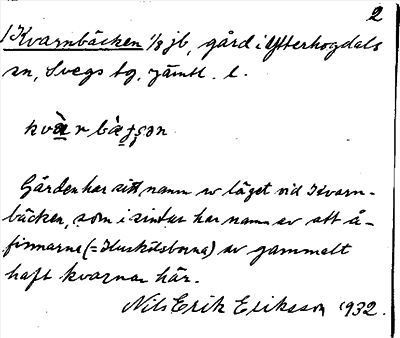 2
Kvarnbäcken 1/8 jb, gård i Ytterhogdals
sn, Svegs tg, Jämtl. l.
kvὰrnbὰçɕən
Gården har sitt namn av läget vid Kvarn-
bäcken, som i sin tur har namn av att å-
finnarna (= Huskölsborna) av gammalt
haft kvarnar här.
Nils Erik Eriksson 1932.